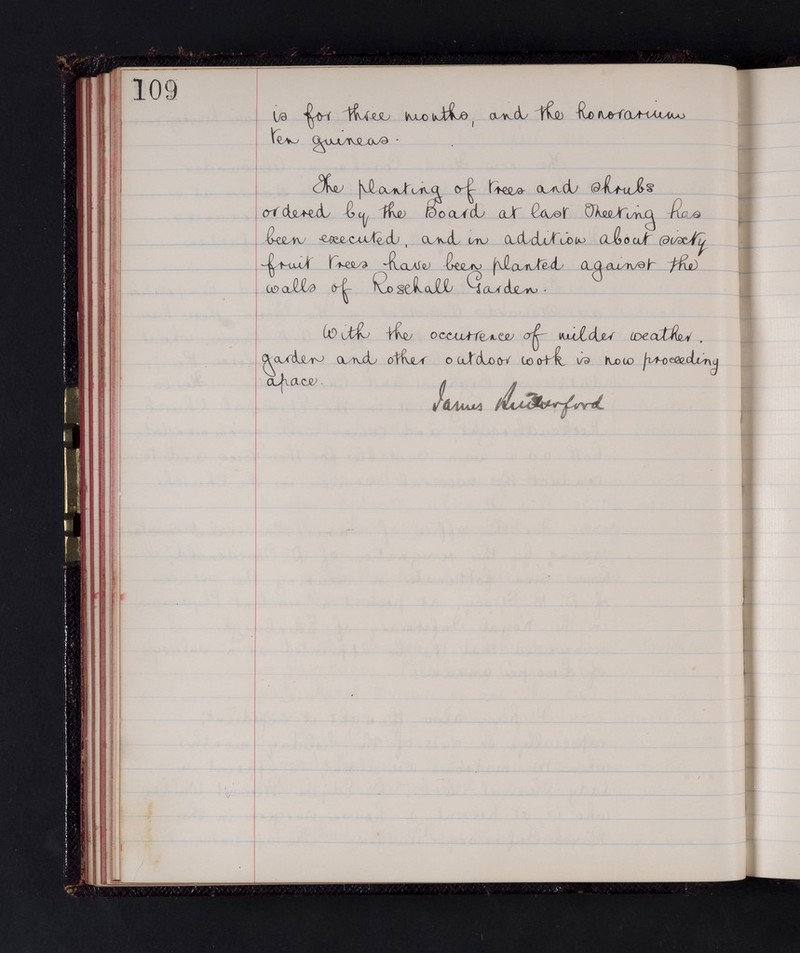 109
is for three months, and the honorarium
ten guineas.
The planting of trees and shrubs
ordered by the Board at last Meeting has
been executed, and in addition about sixty
fruit trees have been planted against the
walls of Rosehall Garden.
With the occurrence of milder weather.
garden and other outdoor work is now proceeding
apace.
James Rutherford